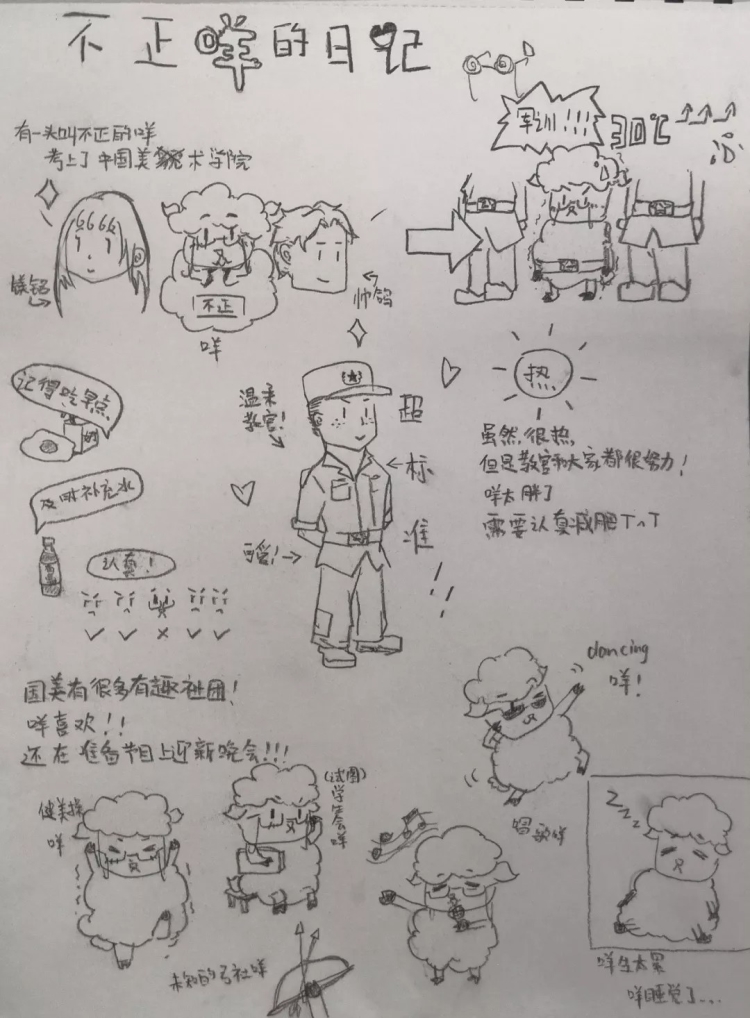 不正咩的日记
有一头叫不正的咩
考上了中国美术学院
军训!!!
30℃
6666
帅鸽
不正
咩
记得吃早点
温柔
教官!
超
标
准
!!
热
虽然很热,
但是教官和大家都很努力!
咩太胖了
需要认真减肥T^T
及时补充水
可爱!
认真!
国美有很多有趣社团!
咩喜欢!!
还在准备节目上迎新晚会!!!
dancing
咩!
健美操
咩
(试图)
学生会咩
唱歌咩
zzz
未知的弓社咩
咩生太累
咩睡觉了...